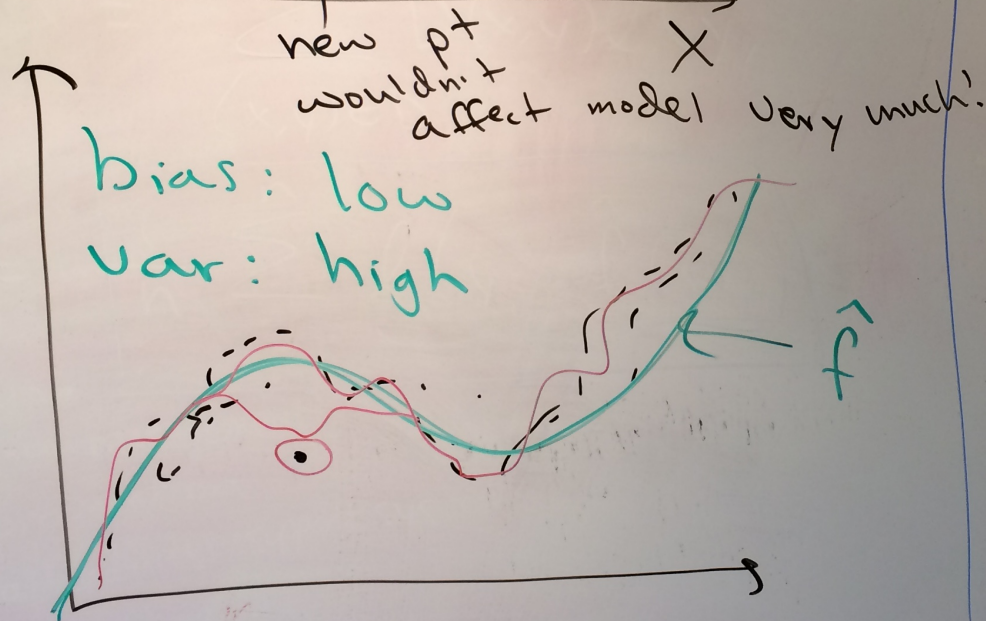 new pt
X
wouldn't
affect model very much!
bias: low
var: high
f̂